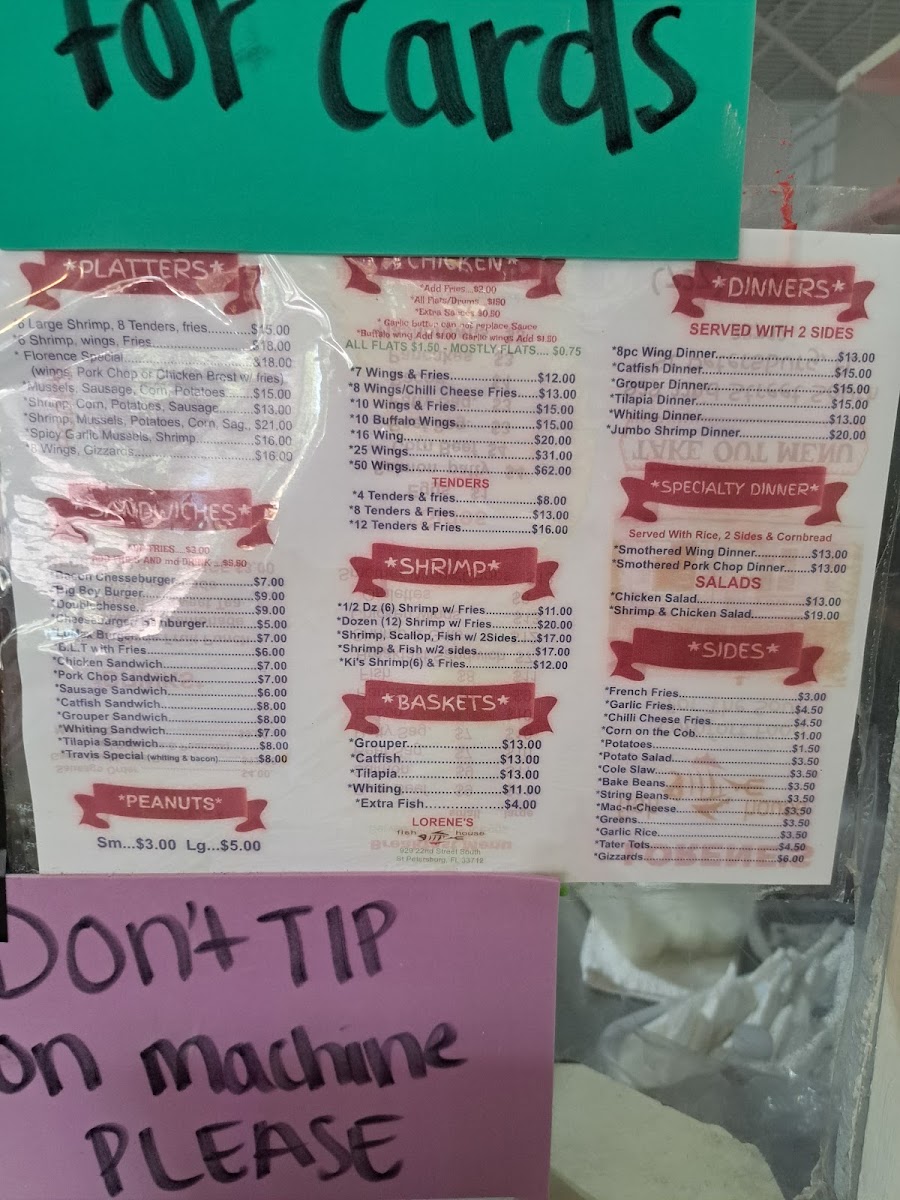 for Cards
*PLATTERS*
8 Large Shrimp, 8 Tenders, fries..........$15.00
*6 Shrimp, wings, Fries..........$18.00
* Florence Special..........&18.00
(wings, Pork Chop or Chicken Brest w/ fries)
*Mussels, Sausage, Corn, Potatoes.......$15.00
*Shrimp, Corn, Potatoes, Sausage........$13.00
*Shrimp, Mussels, Potatoes, Corn, Sag., $21.00
*Spicy Garlic Mussels, Shrimp..........$16.00
Wings, Gizzards..........$16.00
*SANDWICHES*
FRIES....$3.00
AND md DRINK
Chesseburger..........$7.00
*Big Boy Burger..........$9.00
*Doublchesse..........$9.00
*Cheeseburger/Hamburger..........$5.00
Burger..........$7.00
*B.L.T with Fries..........$6.00
*Chicken Sandwich..........$7.00
*Pork Chop Sandwich..........$7.00
*Sausage Sandwich..........$6.00
*Catfish Sandwich..........$8.00
*Grouper Sandwich..........$8.00
*Whiting Sandwich..........$7.00
*Tilapia Sandwich..........$8.00
*Travis Special (whiting & bacon)..........$8.00
*PEANUTS*
Sm...$3.00 Lg...$5.00
*CHICKEN*
*Add Fries...$2.00
*All Flats/Drums...
*Extra Sauces $0.50
* Garlic butter can not replace Sauce
*Buffalo wing Add $1.00 Garlic wings Add $1.00
ALL FLATS $1.50 - MOSTLY FLATS.... $0.75
*7 Wings & Fries..........$12.00
*8 Wings/Chilli Cheese Fries.....$13.00
*10 Wings & Fries..........$15.00
*10 Buffalo Wings..........$15.00
*16 Wing..........$20.00
*25 Wings..........$31.00
*50 Wings..........$62.00
TENDERS
*4 Tenders & fries..........$8.00
*8 Tenders & Fries..........$13.00
*12 Tenders & Fries..........$16.00
*SHRIMP*
*1/2 Dz (6) Shrimp w/ Fries..........$11.00
*Dozen (12) Shrimp w/ Fries..........$20.00
*Shrimp, Scallop, Fish w/ 2Sides.....$17.00
*Shrimp & Fish w/2 sides..........$17.00
*Ki's Shrimp(6) & Fries..........$12.00
*BASKETS*
*Grouper..........$13.00
*Catfish..........$13.00
*Tilapia..........$13.00
*Whiting..........$11.00
*Extra Fish..........$4.00
LORENE'S
fish house
929 22nd Street South
St Petersburg, FL 33712
*DINNERS*
SERVED WITH 2 SIDES
*8pc Wing Dinner..........$13.00
*Catfish Dinner..........$15.00
*Grouper Dinner..........$15.00
*Tilapia Dinner..........$15.00
*Whiting Dinner..........$13.00
*Jumbo Shrimp Dinner..........$20.00
*SPECIALTY DINNER*
Served With Rice, 2 Sides & Cornbread
*Smothered Wing Dinner..........$13.00
*Smothered Pork Chop Dinner..........$13.00
SALADS
*Chicken Salad..........$13.00
*Shrimp & Chicken Salad..........$19.00
*SIDES*
*French Fries..........$3.00
*Garlic Fries..........$4.50
*Chilli Cheese Fries..........$4.50
*Corn on the Cob..........$1.00
*Potatoes..........$1.50
*Potato Salad..........$3.50
*Cole Slaw..........$3.50
*Bake Beans..........$3.50
*String Beans..........$3.50
*Mac-n-Cheese..........$3.50
*Greens..........$3.50
*Garlic Rice..........$3.50
*Tater Tots..........$4.50
*Gizzards..........$6.00
Don't TIP
on machine
PLEASE